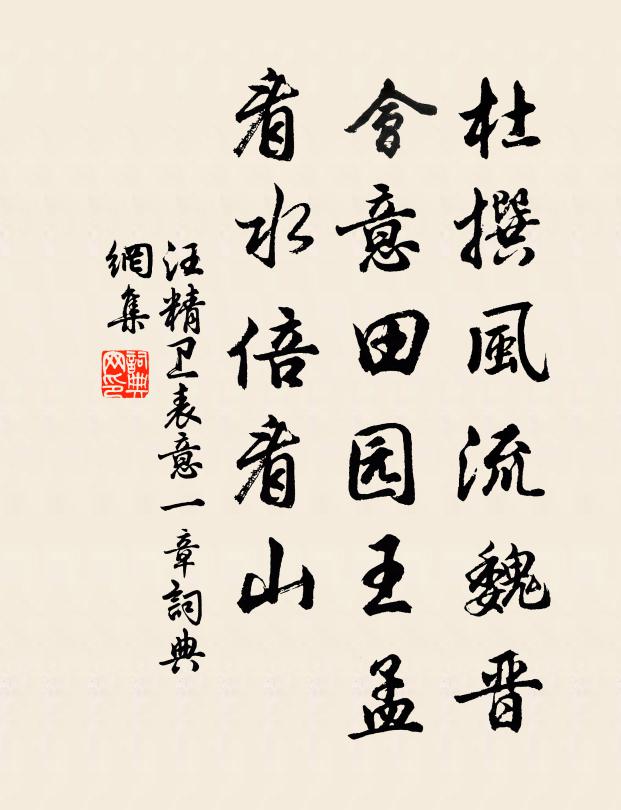 杜撰風流魏晋
會意田园王孟
看水倍看山
汪精卫表意一章詞典
網集
詞典
网印